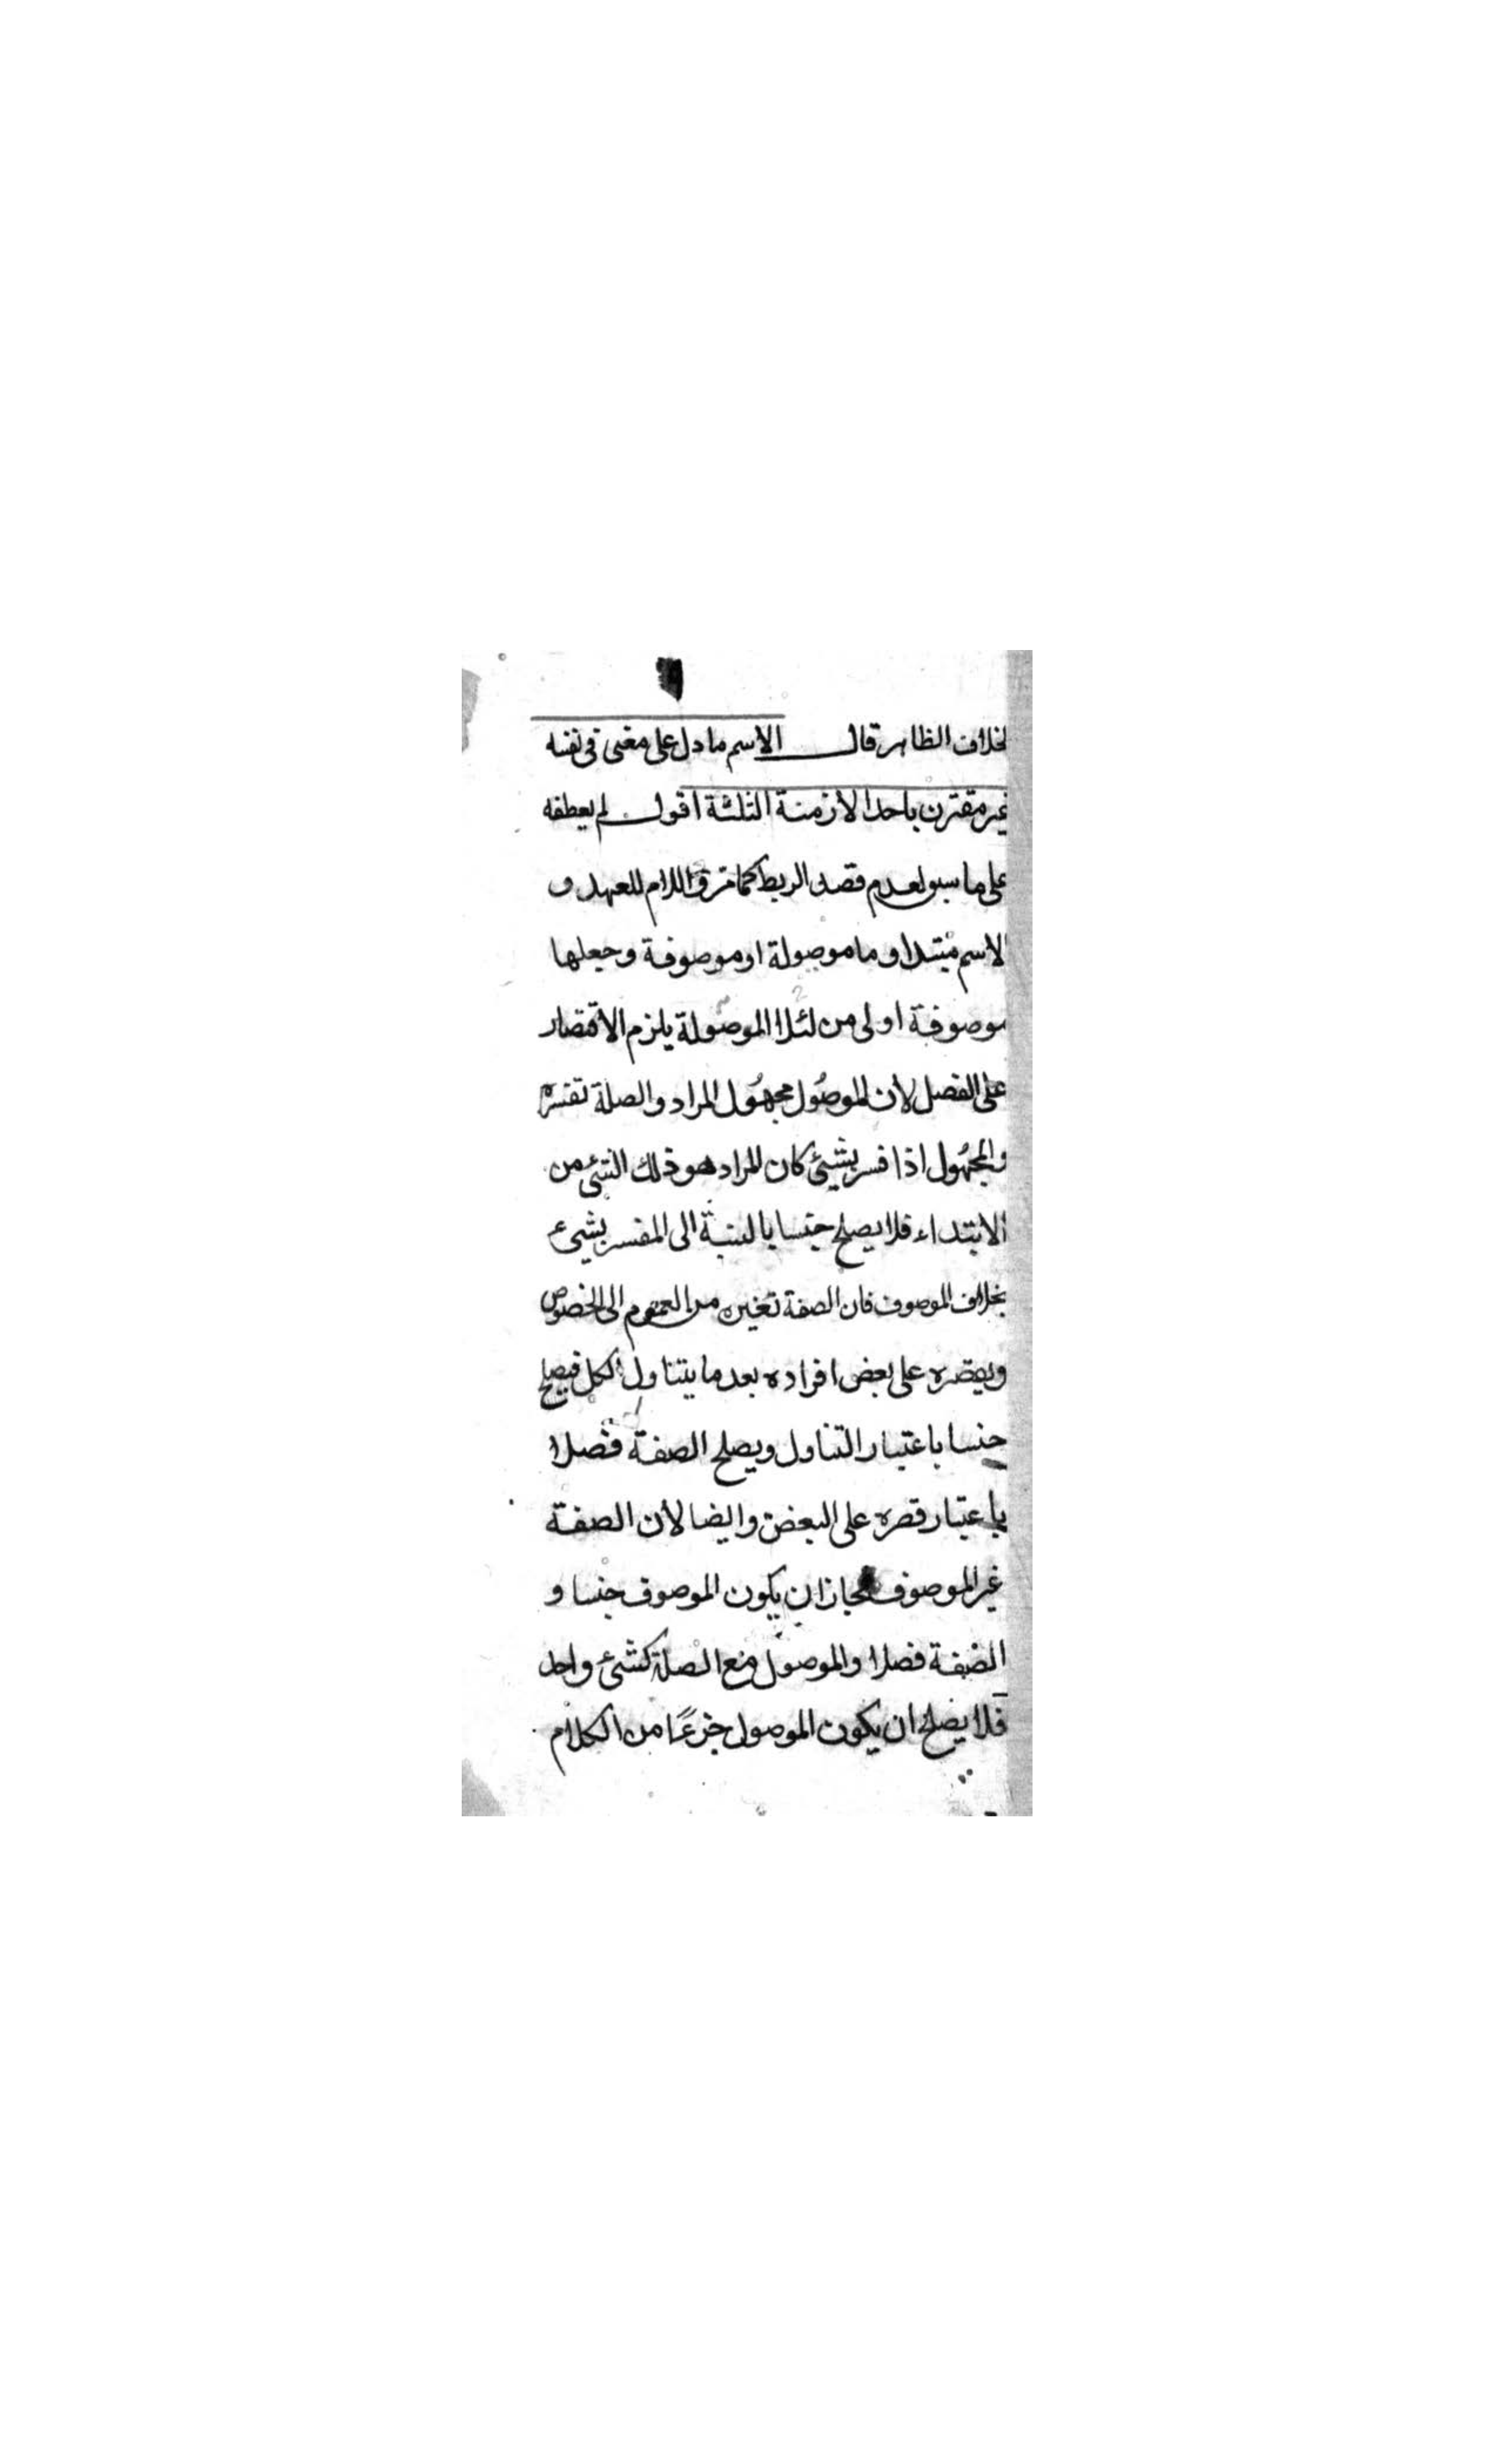 لخلاف الظاهر قال الاسم ما دل على معنى فى نفسه
غير مقترن باحد الازمنة الثلثة اقول لم يعطفه
على ما سبق لعدم قصد الربط كما مر واللام للعهد و
الاسم مبتدا و ما موصولة او موصوفة وجعلها
موصوفة اولى من لئلا الموصولة يلزم الاقتصار
على الفصل لان الموصُول مجهُول المراد والصلة تفسره
والمجهُول اذا فسر بشيئ كان المراد هو ذلك الشئ من
الابتداء فلا يصلح جنسا بالنسبة الى المفسر بشيء
بخلاف الموصوف فان الصفة تغيره من العموم الى الخصوص
ويقصره على بعض افراده بعد ما يتناول الكل فيصلح
جنسا باعتبار التناول ويصلح الصفة فصلا
باعتبار قصره على البعض وايضا لان الصفة
غير الموصوف فجاز ان يكون الموصوف جنسا و
الصفة فصلا والموصول مع الصلة كشئ واحد
فلا يصلح ان يكون الموصول جزءًا من الكلام